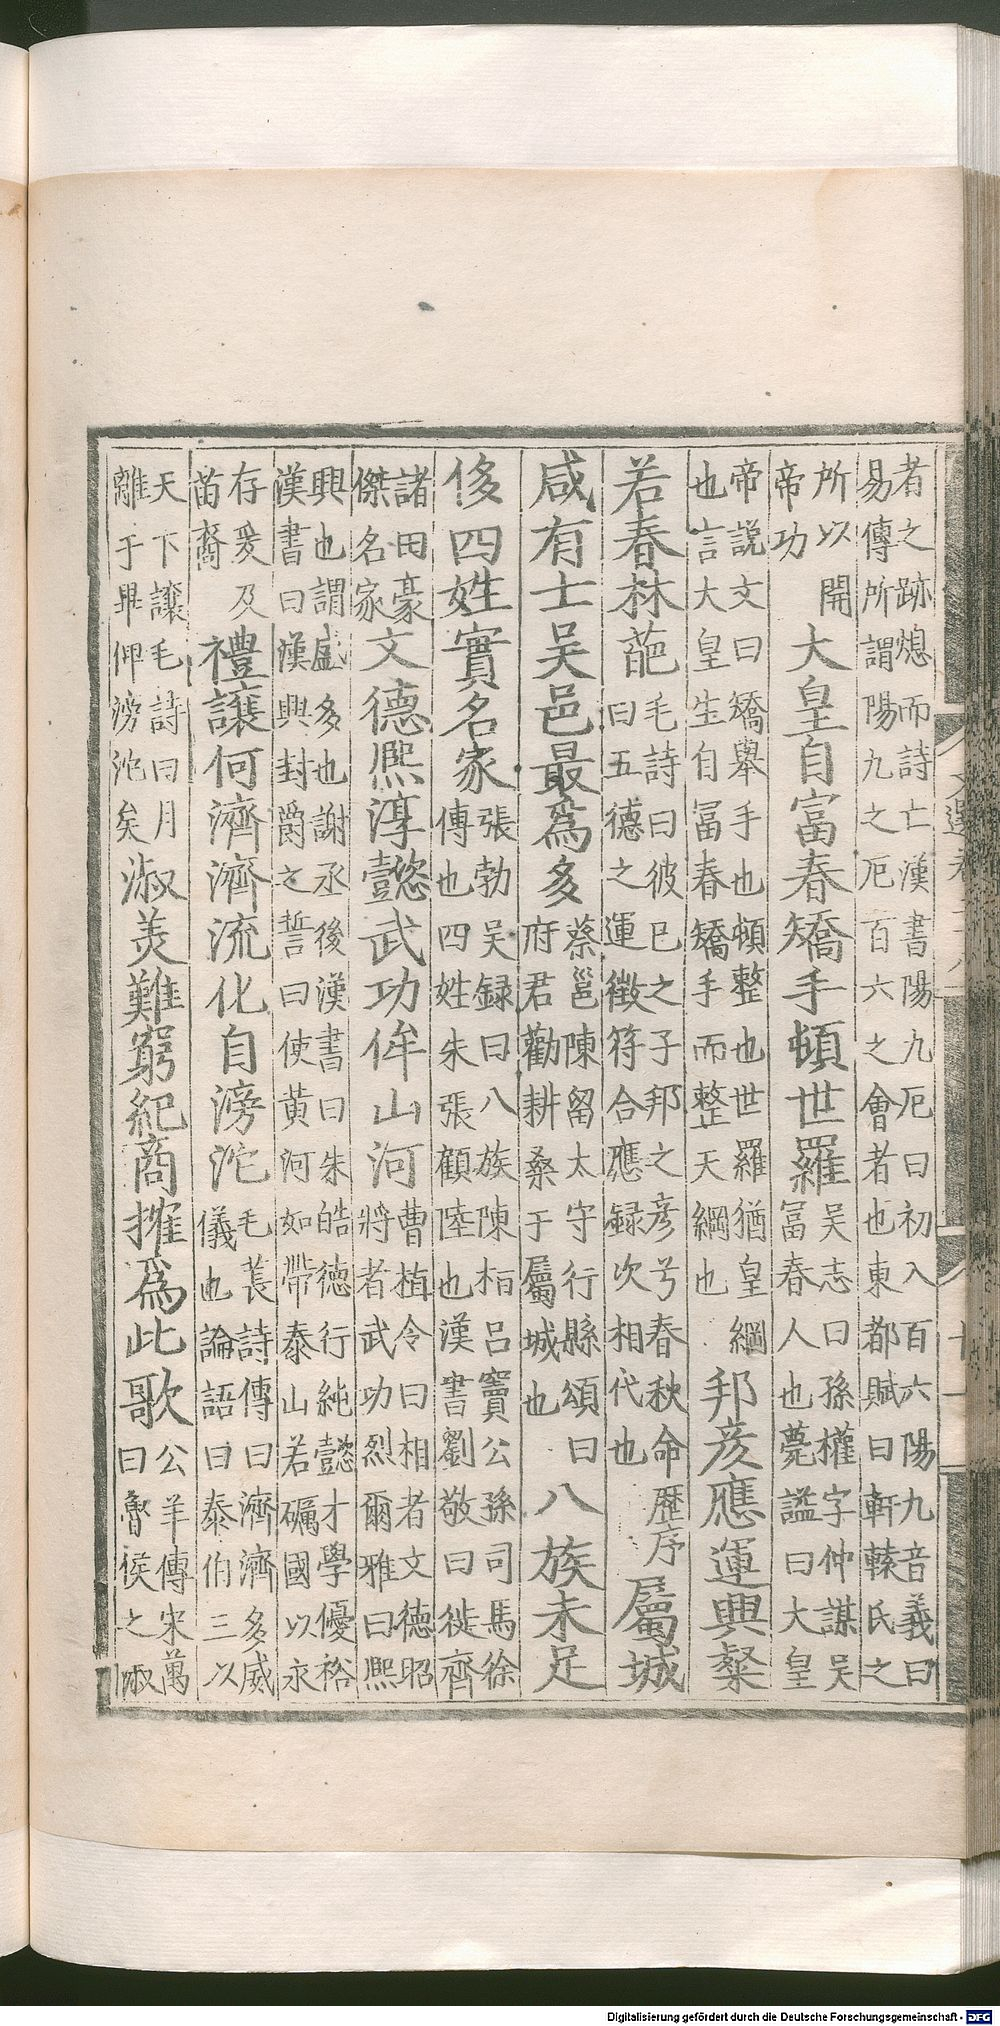 者之跡熄而詩亡漢書陽九厄曰初入百六陽九音義曰
易傳所謂陽九之厄百六之會者也東都賦曰軒轅氏之
所以開
帝功
大皇自富春矯手頓世羅
吳志曰孫權字仲謀吳
富春人也薨諡曰大皇
帝說文曰矯舉手也頓整也世羅猶皇綱
也言大皇生自富春矯手而整天綱也
邦彥應運興粲
若春林葩
毛詩曰彼已之子邦之彥兮春秋命歷序
曰五德之運徵符合應録次相代也
屬城
咸有士吳邑最爲多
蔡邕陳留太守行縣頌曰
府君勸耕桑于屬城也
八族未足
侈四姓實名家
張勃吳録曰八族陳桓吕竇公孫司馬徐
傳也四姓朱張顧陸也漢書劉敬曰徙齊
諸田豪
傑名家
文德熙淳懿武功侔山河
曹植令曰相者文德昭
將者武功烈爾雅曰熙
興也謂盛多也謝丞後漢書曰朱皓德行純懿才學優裕
漢書曰漢興封爵之誓曰使黃河如帶泰山若礪國以永
存爰及
苗裔
禮讓何濟濟流化自滂沱
毛萇詩傳曰濟濟多威
儀也論語曰泰伯三以
天下讓毛詩曰月
離于畢仰滂沱矣
淑美難窮紀商搉爲此歌
公羊傳宋萬
曰魯侯之淑
Digitalisierung gefördert durch die Deutsche Forschungsgemeinschaft - DFG